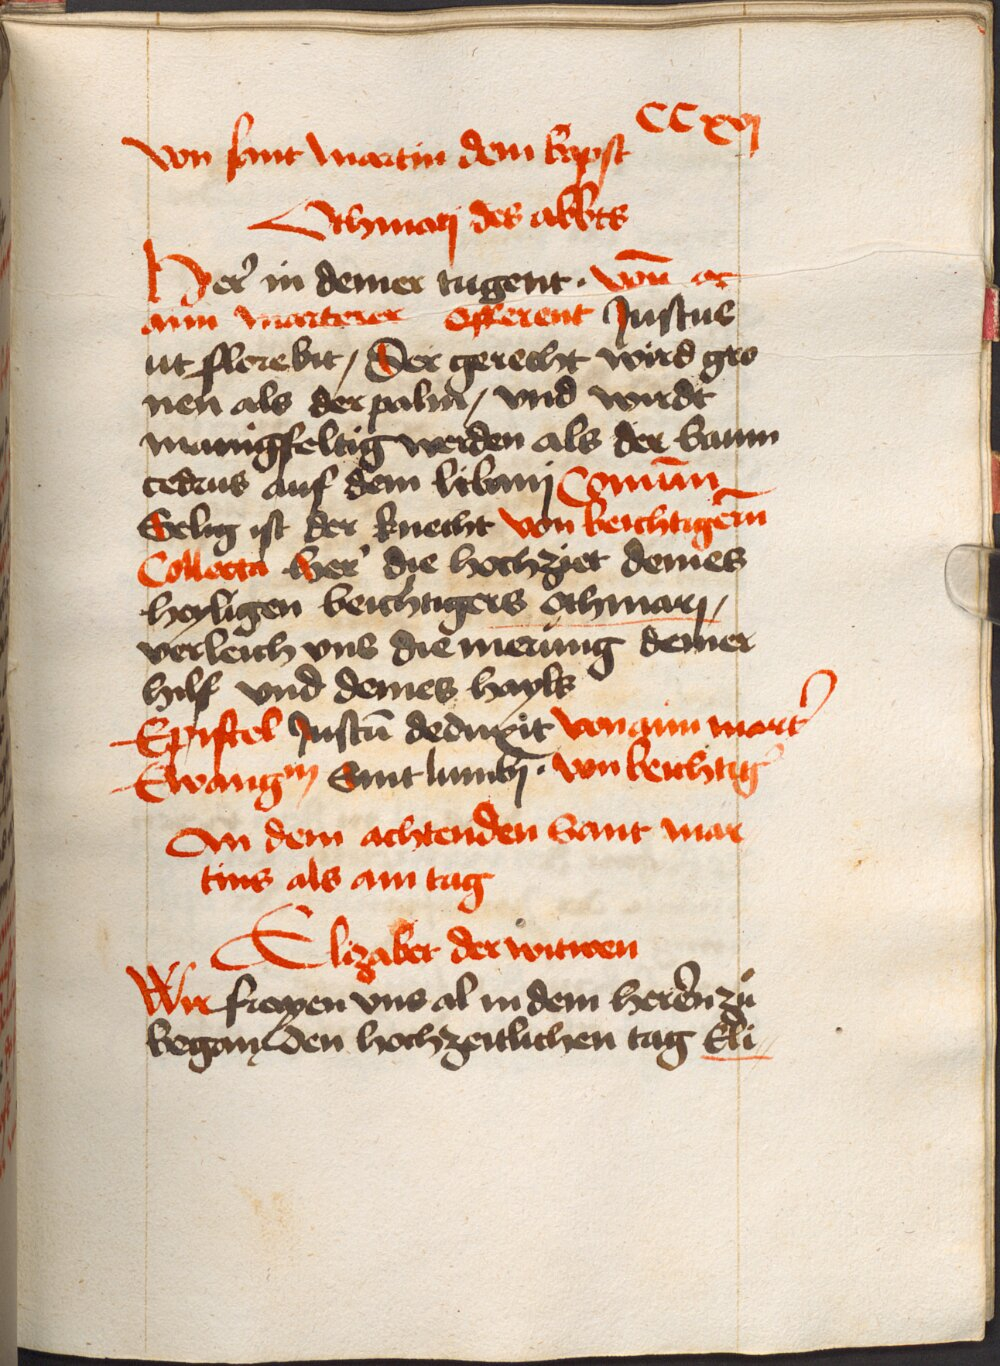 CCxvj
von sant martin dem bapst
Othmarj des abbts
Her in deiner tugent · von
aim marterer offerent Justus
ut florebit / Der gerecht wird gro
nen als der palm / vnd wirdt
manigfeltig werden als der baum
cedrus auf dem libanj Comūn
Selig ist der knecht von beichtigern̄
Collecta her die hochziet deines
heyligen beichtigers othmarj /
verleich vns die merung deiner
hilf vnd deines hayls
Epistel Justū deduxit von aim mart'
Ewangm Sint lumbj · von beichtig'
An dem achtenden sant mar
tins als am tag
Elizabet der witwen
Wir freyen vns al in dem heren zu
began den hochzeitlichen tag Eli